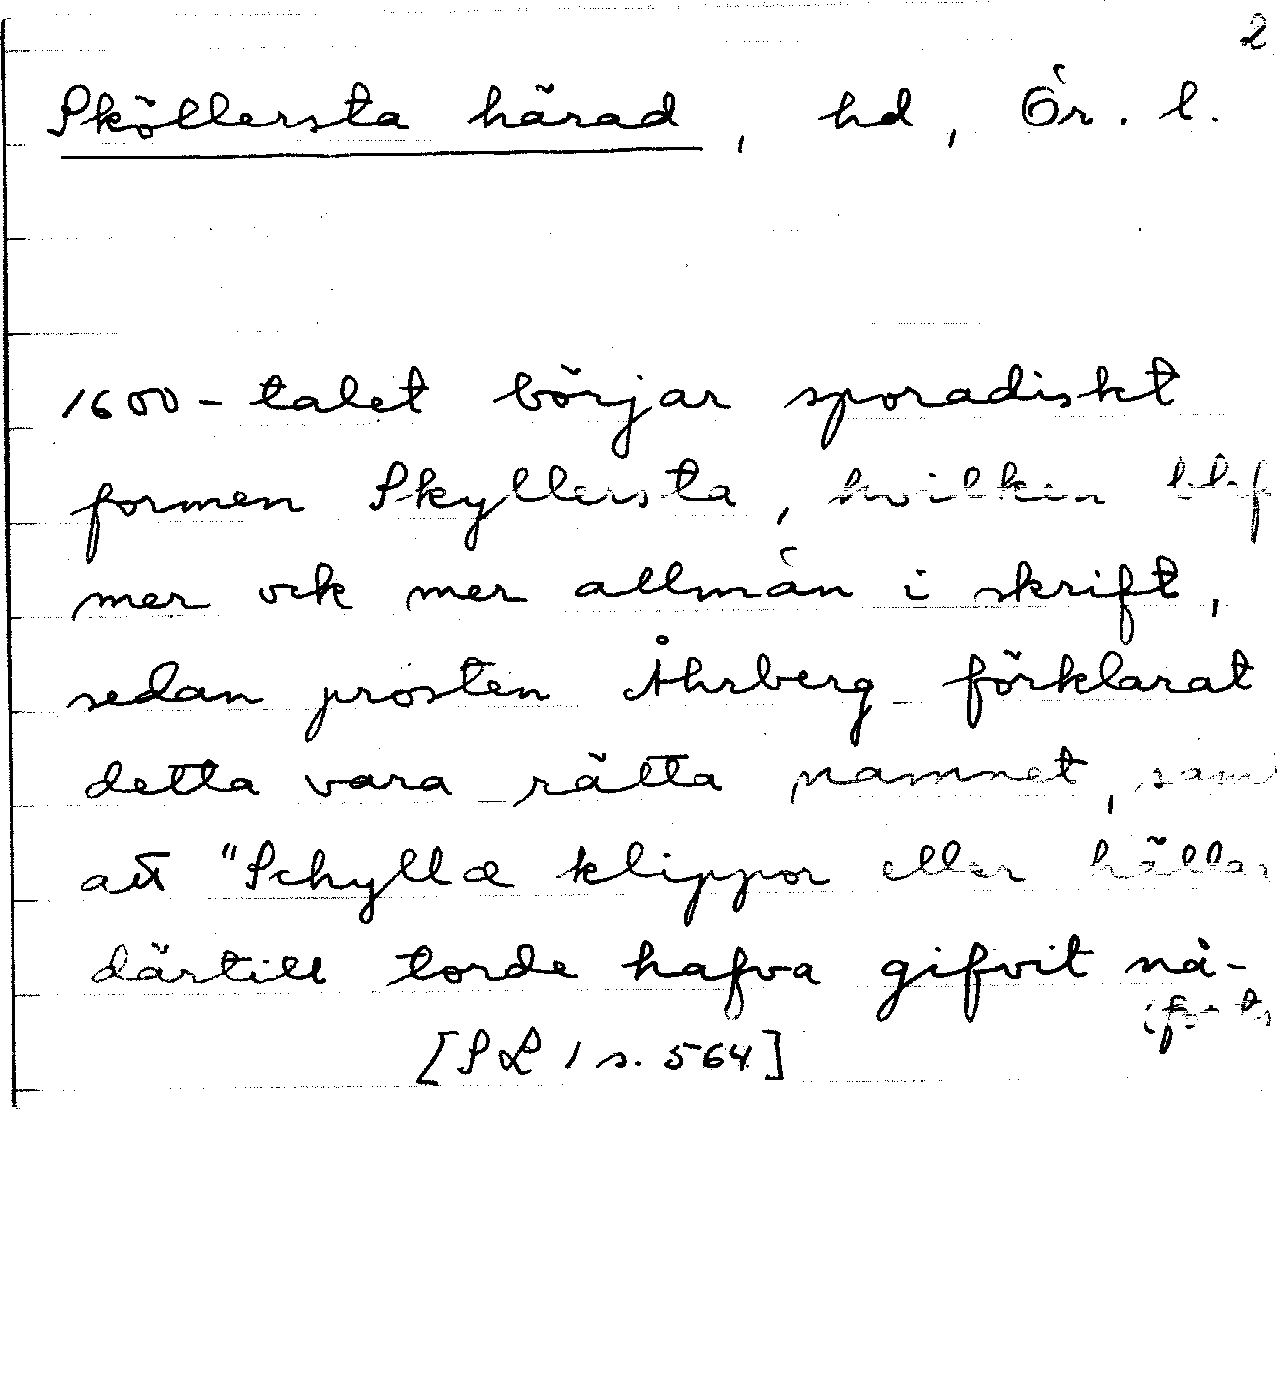 2
Sköllersta härad, hd, Ör. l.
1600-talet börjar sporadiskt
formen Skyllersta, hvilken blef
mer ock mer allmän i skrift,
sedan prosten Åhrberg förklarat
detta vara rätta namnet, samt
att "Schyllæ klippor eller hällar
därtill torde hafva gifvit nå-
[SL 1 s. 564]